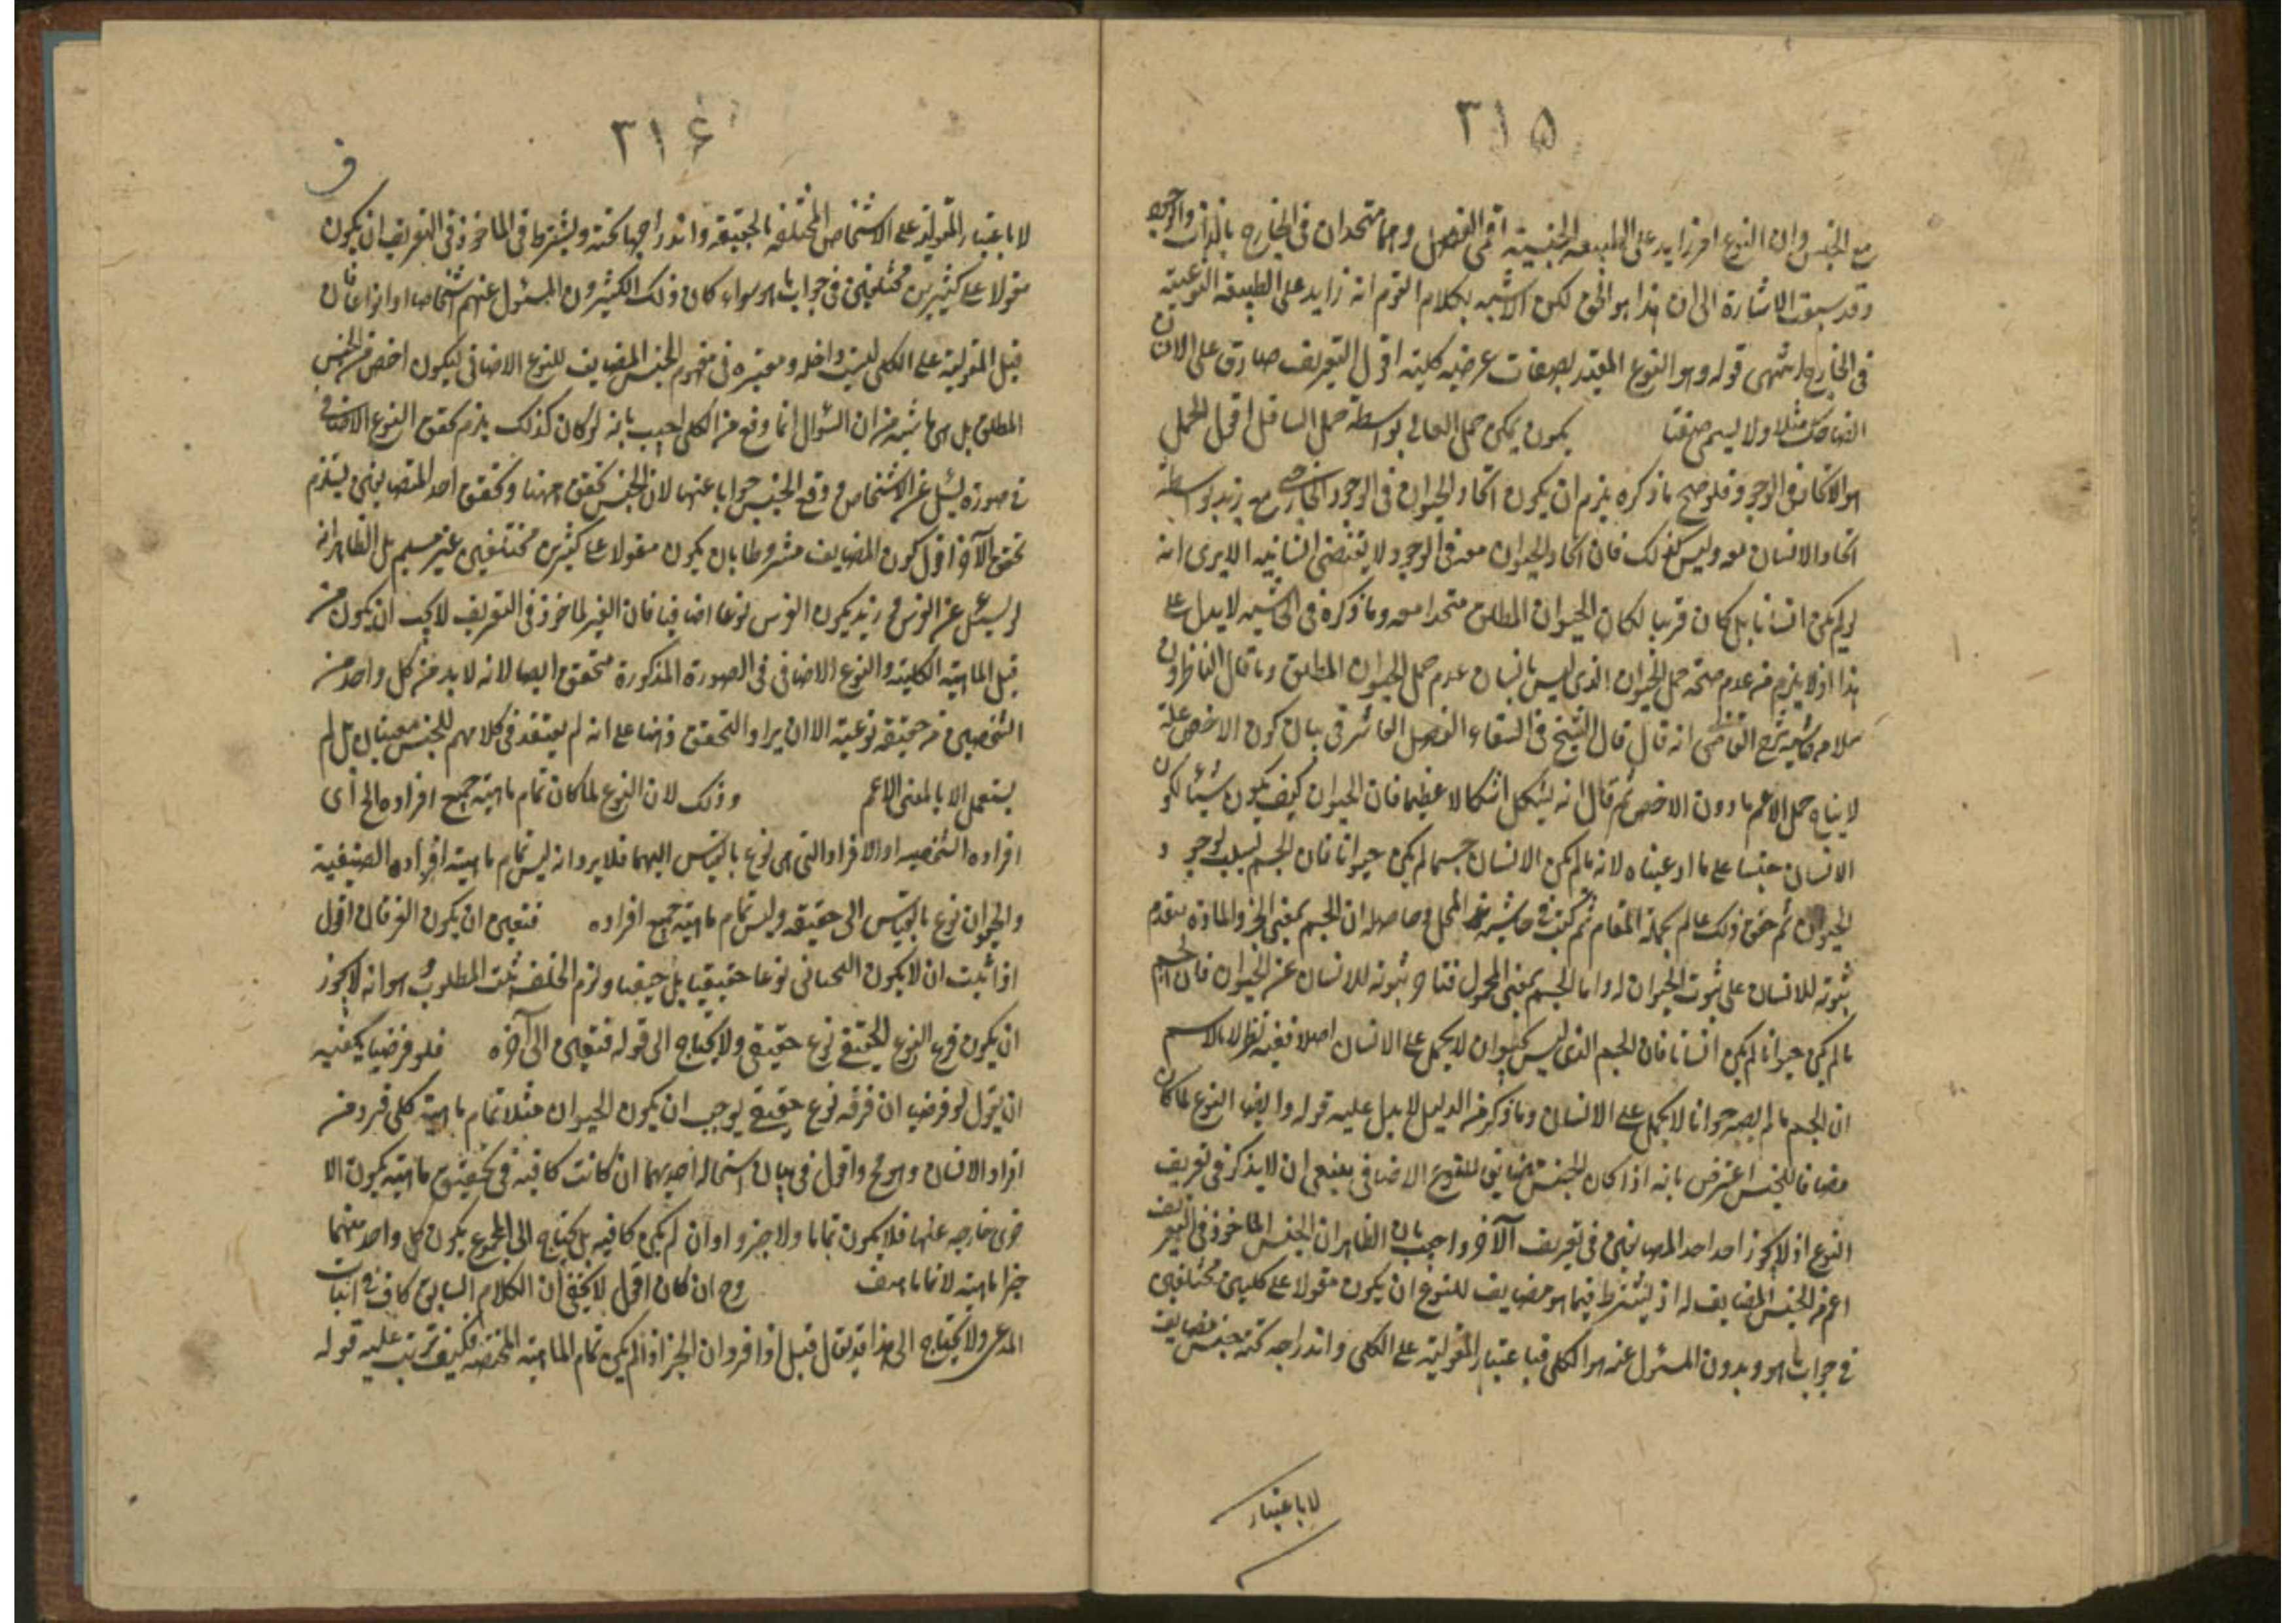 ٣١٥
مع الجنس وان النوع امر زايد على الطبيعة الجنسية اقول الفصل وهما متحدان فى الخارج بالذات والوجود
وقد سبقت الاشارة الى ان هذا هو الحق لكن الاشبه بكلام القوم انه زايد على الطبيعة النوعية
فى الخارج انتهى قوله وهو النوع المقيد بصفات عرضية كلية اقول التعريف صادق على الانسان
الضاحك مثلا ولا يسمى صنفا يكون يمكن حمل العالى بواسطة حمل السافل اقول الحمل
هو الاتحاد فى الوجود فلو صح ما ذكره يلزم ان يكون اتحاد الحيوان فى الوجود الخارجى مع زيد بواسطة
اتحاد الانسان معه وليس كذلك فان اتحاد الحيوان معه فى الوجود لا يقتضى انسانيه الا يرى انه
لو لم يكن انسانا بل كان فرسا لكان الحيوان المطلق متحدا معه وما ذكره فى الحاشيه لا يدل على
هذا اذ لا يلزم من عدم صحة حمل الحيوان الذى ليس بانسان عدم حمل الحيوان المطلق وما قال الناظرون
حاشيه شرح القاضى انه قال قال الشيخ فى الشفاء الفصل العاشر فى بيان كون الاخص علة
لا ينافى حمل الاعم ما دون الاخص ثم قال انه يشكل اشكالا عظيما فان الحيوان كيف يكون سببا لكون
الانسان جسما على ما ادعيناه لانه ما لم يكن الانسان جسما لم يكن حيوانا فان الجسم سبب لوجود
الحيوان ثم حقق ذلك المقام ثم كتب فى حاشيه المحل وحاصله ان الجسم بمعنى الجزء والمادة يتقدم
ثبوته للانسان على ثبوت الحيوان له واما الجسم بمعنى المحمول فيتاخر ثبوته للانسان عن الحيوان فان الجسم
ما لم يكن حيوانا لم يكن انسانا فان الجسم الذى ليس بحيوان لا يحمل على الانسان اصلا ففيه نظر لانا لا نسلم
ان الجسم ما لم يصر حيوانا لا يحمل على الانسان وما ذكر من الدليل لا يدل عليه قوله وايضا النوع لما كان
مضافا للجنس اعترض بانه اذا كان الجنس مضايف للنوع الاضافى ينبغى ان لا يذكر فى تعريف
النوع اذ لا يجوز اخذ احد المضايفين فى تعريف الآخر واجيب بان الظاهر ان الجنس الماخوذ فى التعريف
اعم من الجنس المضايف له اذ يشترط فيما هو مضايف للنوع ان يكون مقولا على كليين مختلفين
فى جواب ما هو وبدون المسئول عنه هو الكلى فباعتبار المقولية على الكلى واندراجه تحته جنس مضايف
لا باعتبار
٣١٦
لا باعتبار المقولية على الاشخاص المختلفة بالحقيقة واندراجها تحته ويشترط فى الماخوذ فى التعريف ان يكون
مقولا على كثيرين مختلفين فى جواب ما هو سواء كان ذلك الكثيرون المسئول عنهم اشخاصا او انواعا فان
قيل المقولية على الكلى ليست داخلة ومعتبرة فى مفهوم الجنس المضايف للنوع الاضافى ليكون اخص من الجنس
المطلق بل هى ناشية من ان السؤال انما وقع من الكلى اجيب بانه لو كان كذلك يلزم تحقق النوع الاضافى
فى صورة يسئل عن الاشخاص ووقع الجنس جوابا عنها لان الجنس تحقق ههنا وتحقق احد المتضايفين يستلزم
تحقق الآخر اقول كون المضايف مشروطا بان يكون مقولا على كثيرين مختلفين غير مسلم بل الظاهر انه
لو سئل عن الفرس وزيد يكون الفرس نوعا اضافيا فان الغير الماخوذ فى التعريف لا يجب ان يكون من
قبل الماهية الكلية والنوع الاضافى فى الصورة المذكورة متحقق ايضا لانه لا بد من كل واحد من
الشخصين من حقيقة نوعية الا ان يراد التحقق ذهنا على انه لم يعتقد فى كلامهم للجنس معنيان بل لم
يستعمل الا بالمعنى الاعم وذلك لان النوع لما كان تمام ماهية جميع افراده الخ اى
افراده الشخصيه او الافراد التى هى نوع بالقياس اليها فلا يرد انه ليس تمام ماهية افراده الصنفية
والحيوان نوع بالقياس الى حقيقه وليس تمام ماهية جميع افراده فتعين ان يكون الفرقان اقول
اذا ثبت ان لا يكون التحتانى نوعا حقيقيا بل جنسا ولزم الخلف ثبت المطلوب وهو انه لا يجوز
ان يكون فوق النوع الحقيقى نوع حقيقى ولا يحتاج الى قوله فتعين الى آخره فلو فرضنا يكفيه
ان يقول لو فرضنا ان فوقه نوع حقيقى لوجب ان يكون الحيوان مثلا تمام ماهية كل فرد من
افراد الانسان وهو مح واقول فى بيان استحاله احديهما ان كانت كافية فى تحقيق ماهية يكون الا
خرى خارجه عنها فلا يكون تماما ولا جزءا وان لم يكن كافيه بل يحتاج الى المجموع يكون كل واحد منهما
جزا ماهية لا تماما هف وح ان كان اقول لا يخفى ان الكلام السابق كاف فى اثبات
المدعى ولا يحتاج الى هذا قد يقال قيل اذا فرد ان الجزء اذا لم يكن تمام الماهية المختصه فكيف ترتب عليه قوله